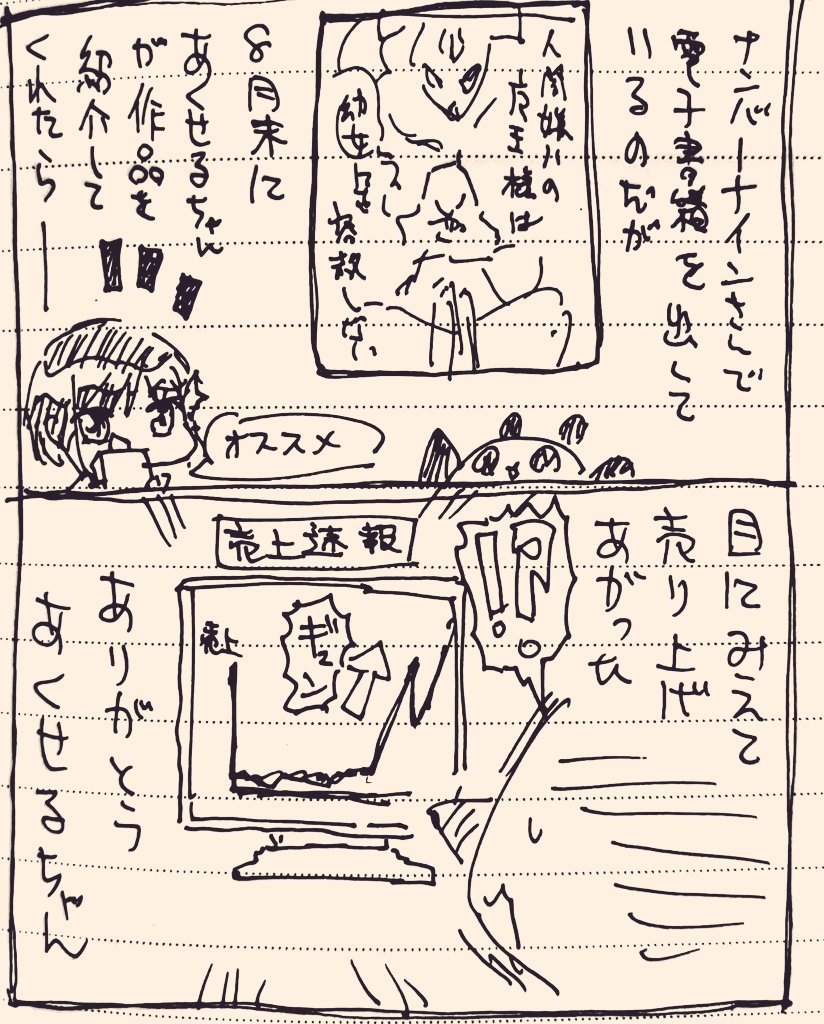 ナンバーナインさんで
電子書籍を出して
いるのだが
人間嫌いの
魔王様は
幼女
8月末に
あくせるちゃん
が作品を
紹介して
くれたら—
!!!
オススメ
目にみえて
売り上げ
あがっひ
!!?
売上速報
売上
ギュン
ありがとう
あくせるちゃん